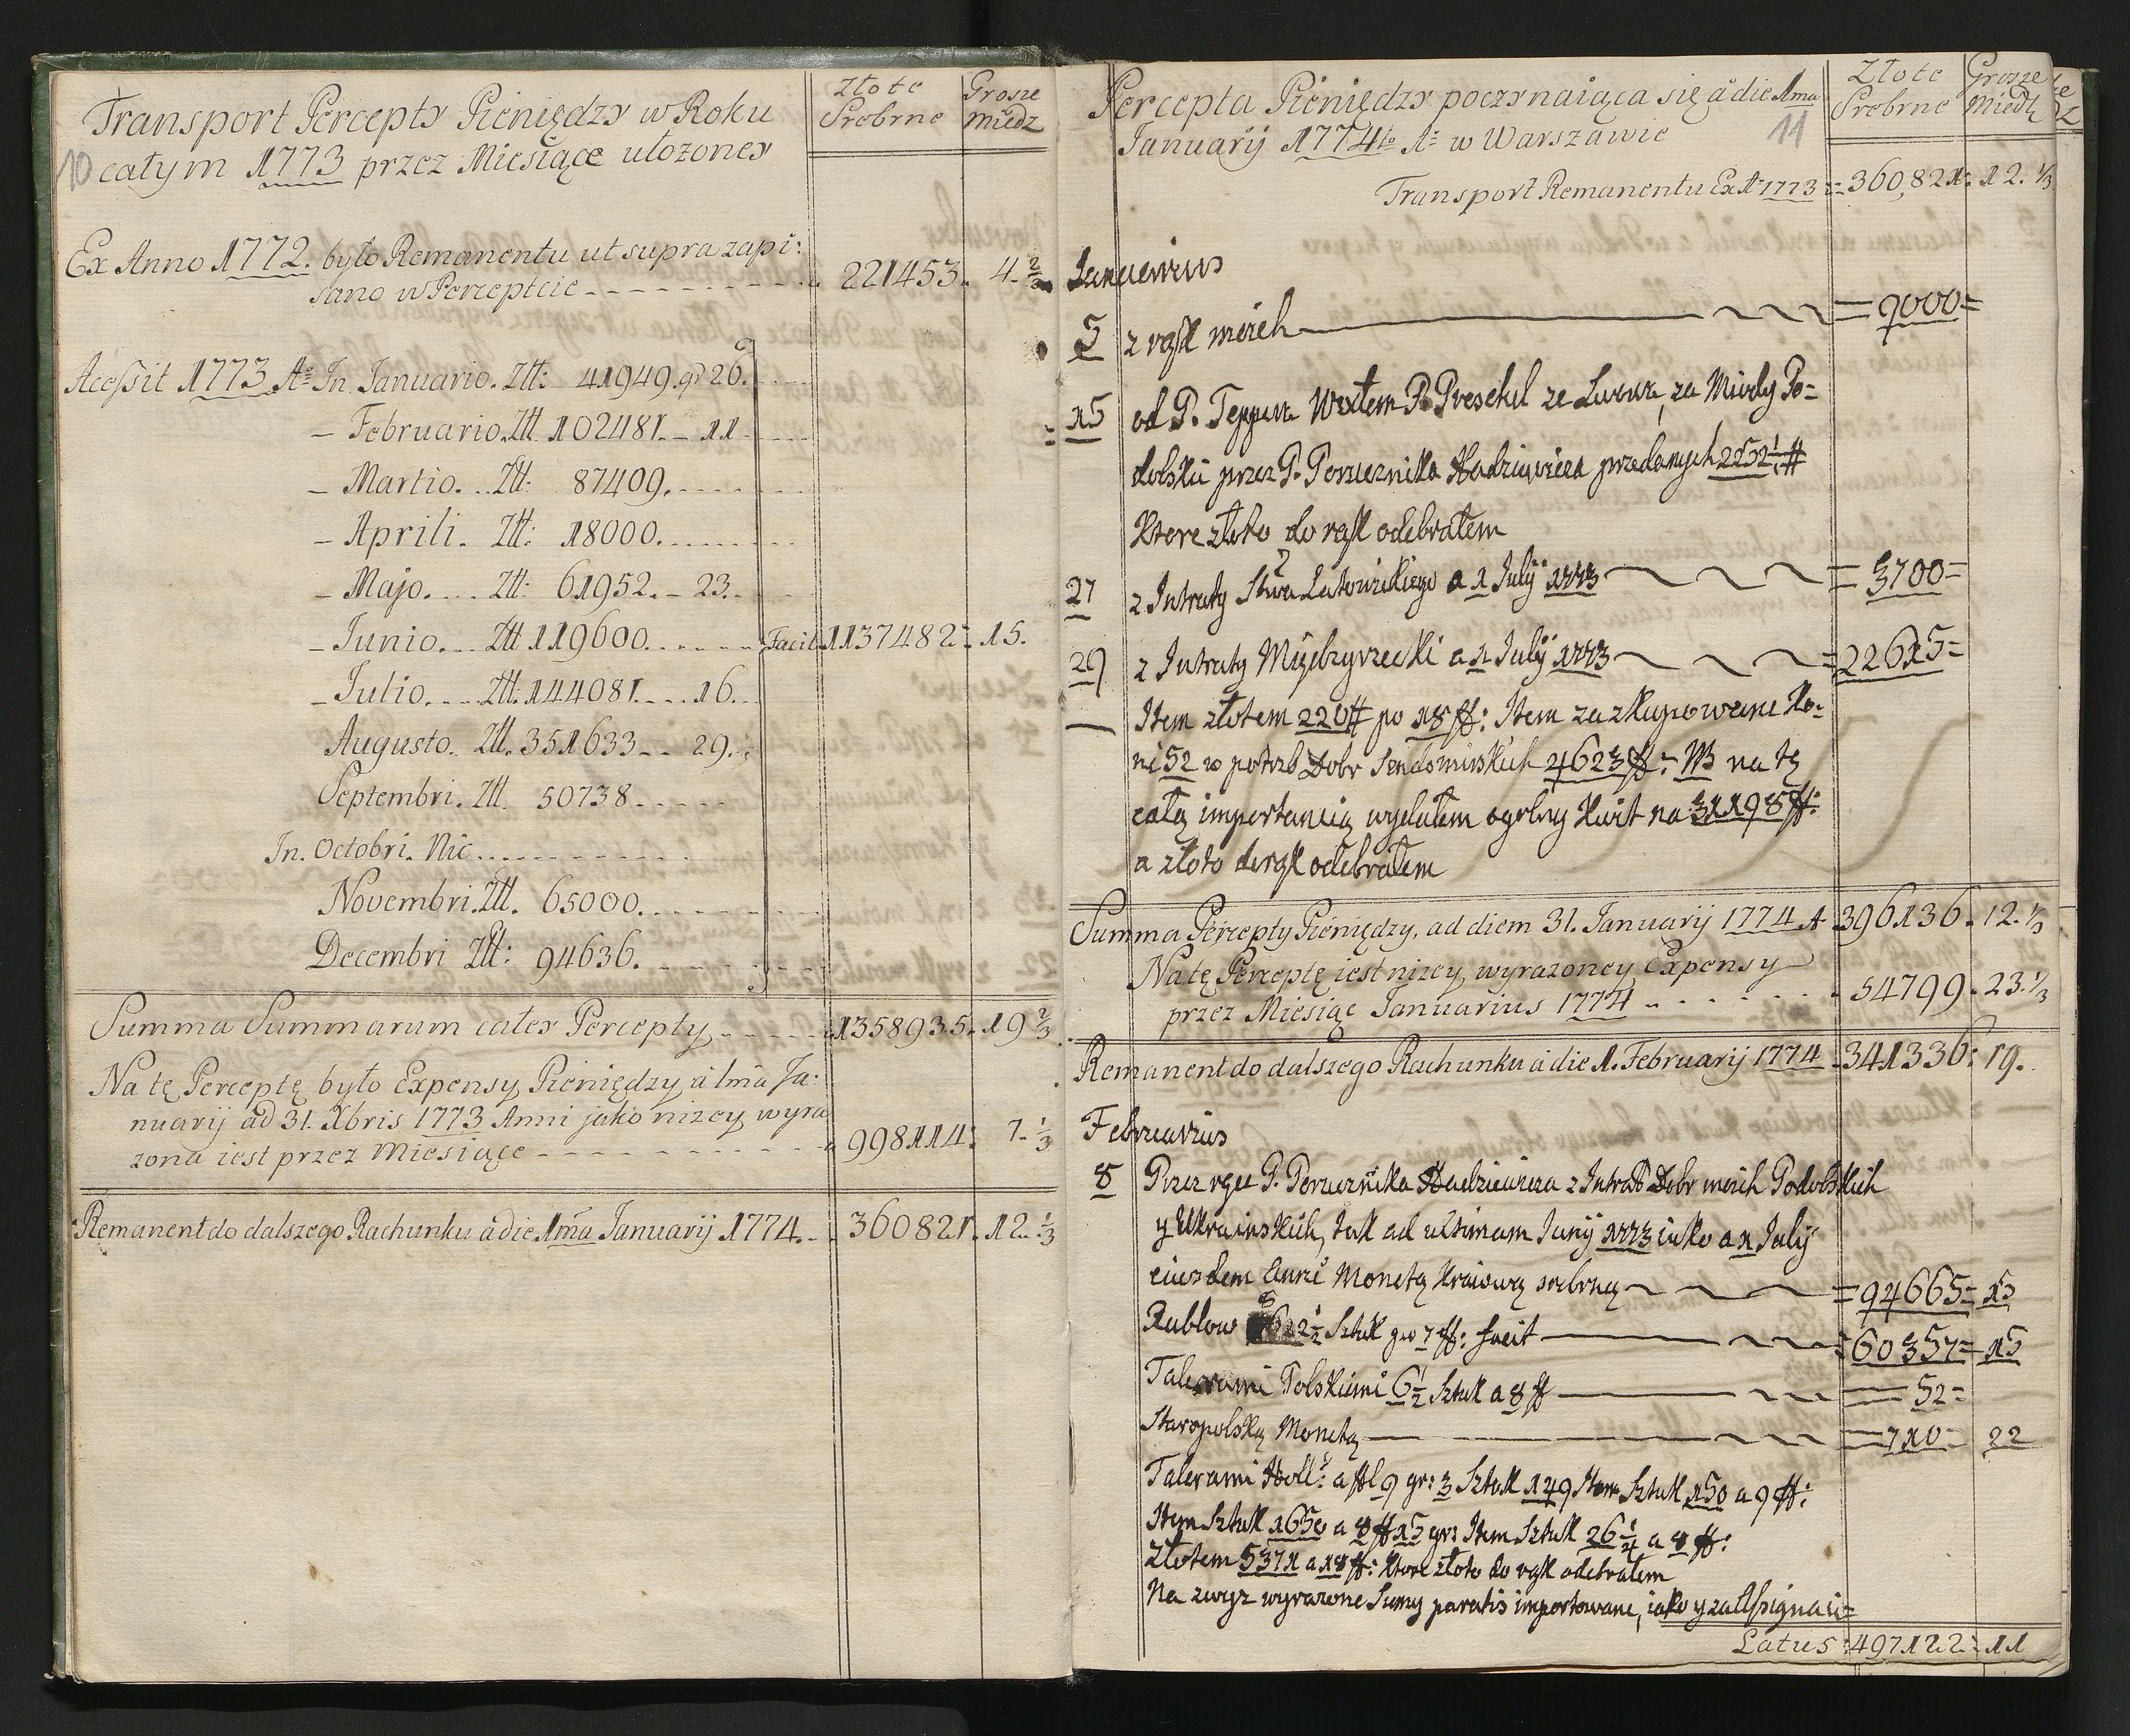 Złote Srebrne
Grosze miedz
Transport Percepty Pieniędzy w Roku
10 całym 1773 przez Miesiące ułożoney
Ex Anno 1772. było Remanentu ut supra zapi:
sano w Percepcie - - - 221453. 4. 2/3
Accessit 1773 Aº In Januario. Złł: 41949. gr 26.
- Februario. Złł. 102481. - 11
- Martio. .. Złł: 87409.
- Aprili. Złł: 18000.
- Majo. ... Złł: 61952. - 23.
- Junio. ... Złł 119600. Facit 1137482 = 15.
- Julio. ... Złł. 144081. ... 16.
Augusto. Złł. 351633 - - 29.
Septembri. Złł. 50738
In. Octobri. Nic
Novembri. Złł. 65000.
Decembri Złł: 94636.
Summa Summarum całey Percepty 1358935. 19 2/3
Na tę Perceptę było Expensy Pieniędzy à 1ma Ja:
nuarij ad 31. Xbris 1773 Anni jako niżey wyra
żona iest przez Miesiące - - - 998114: 7. 1/3
Remanent do dalszego Rachunku à die 1ma Januarij 1774. - 360821. 12. 1/3
Złote Srebrne
Grosze Miedz
Percepta Pieniędzy poczynaiąca się à die 1ma
Januarij 1774to Aº w Warszawie
11
Transport Remanentu Ex Aº 1773 = 360,821 = 12. 1/3
Januarius
5 z rąk moich = 9000 =
15 od P. Teppera Wexlem P. Preschel ze Lwowa, za Miody Po=
dolskie przez P. Porucznika Hadziewicza przedanych 2252 1/2 #
Ktore złoto do rąk odebrałem
27 z Intraty Stwa Latowickiego a 1 Julij 1773 = 3700 =
29 z Intraty Międzyrzecki a 1 Julij 1773 = 22615 =
Item złotem 220 # po 18 ff: Item za zkupowane Ko:
ni 52 w potrzeb Dobr Sendomirskich 4623 ff: NB na tę
całą importancią wydałem ogolny Kwit na 31198 ff:
a złoto do rąk odebrałem
Summa Percepty Pieniędzy, ad diem 31. Januarij 1774 A 396136. 12. 1/3
Na tę Perceptę iest niżey wyrażoney Expensy
przez Miesiąc Januarius 1774 54799. 23. 1/3
Remanent do dalszego Rachunku à die 1. Februarij 1774 341336: 19.
Februarius
8 Przez ręce P. Porucznika Hadziewicza z Intrat Dobr moich Podolskich
y Ukrainskich, tak ad ultimam Junij 1773 iako a 1 Julij
eiusdem Anni Monetą Kraiową srebrną = 94665 = 15
Rublow Sztuk po 7 ff: facit 60357 = 15
Talerami Polskiemi 6 1/2 Sztuk a 8 ff = 52 =
Staropolską Monetą = 710 = 22
Talerami Holl: a ffl 9 gr: 3 Sztuk 149 Item Sztuk 150 a 9 ff:
Item Sztuk 1650 a 8 ff 15 gr: Item Sztuk 26 1/4 a 8 ff:
Złotem 5371 a 18 ff: Ktore złoto do rąk odebrałem
Na zwyż wyrażone Sumy paratis importowane, iako y za Assignaci=
Latus: 497122: 11